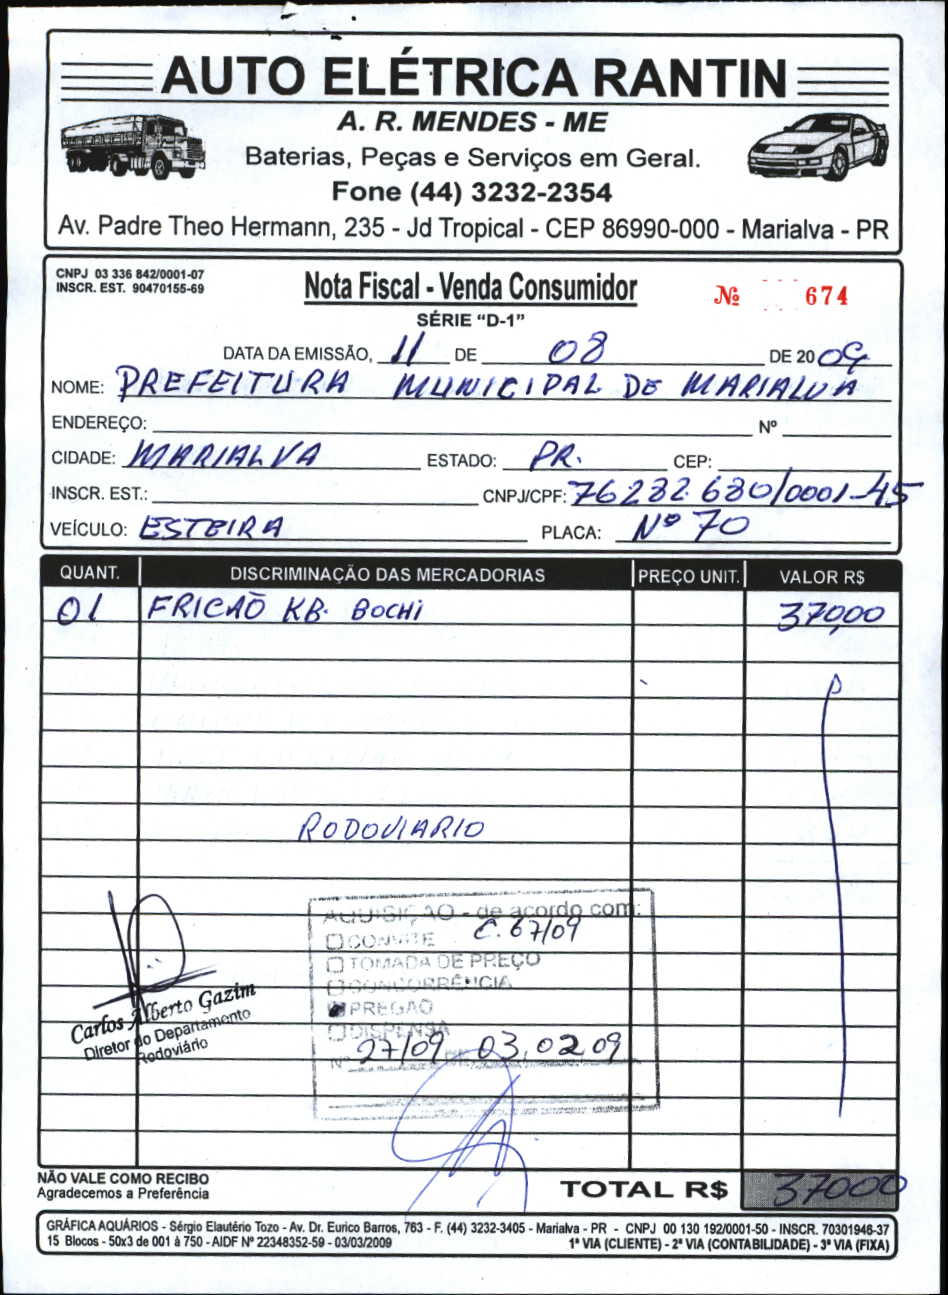 AUTO ELÉTRICA RANTIN
A. R. MENDES - ME
Baterias, Peças e Serviços em Geral.
Fone (44) 3232-2354
Av. Padre Theo Hermann, 235 - Jd Tropical - CEP 86990-000 - Marialva - PR
CNPJ 03 336 842/0001-07
INSCR. EST. 90470155-69
Nota Fiscal - Venda Consumidor
Nº 674
SÉRIE "D-1"
DATA DA EMISSÃO, 11 DE 08 DE 2009
NOME: PREFEITURA MUNICIPAL DE MARIALVA
ENDEREÇO: Nº
CIDADE: MARIALVA ESTADO: PR. CEP:
INSCR. EST.: CNPJ/CPF: 76282.680/0001-45
VEÍCULO: ESTEIRA PLACA: Nº 70
QUANT. DISCRIMINAÇÃO DAS MERCADORIAS PREÇO UNIT. VALOR R$
01 FRICAÕ KB. BOCHI 370,00
RODOVIARIO
AQUISIÇÃO - de acordo com:
CONVITE C. 67/09
TOMADA DE PREÇO
CONCORRÊNCIA
PREGÃO
DISPENSA
Nº 27/09 DE 03.02.09
Carlos Alberto Gazim
Diretor do Departamento
Rodoviário
NÃO VALE COMO RECIBO
Agradecemos a Preferência
TOTAL R$ 37000
GRÁFICA AQUÁRIOS - Sérgio Elautério Tozo - Av. Dr. Eurico Barros, 763 - F. (44) 3232-3405 - Marialva - PR - CNPJ 00 130 192/0001-50 - INSCR. 70301946-37
15 Blocos - 50x3 de 001 à 750 - AIDF Nº 22348352-59 - 03/03/2009 1ª VIA (CLIENTE) - 2ª VIA (CONTABILIDADE) - 3ª VIA (FIXA)